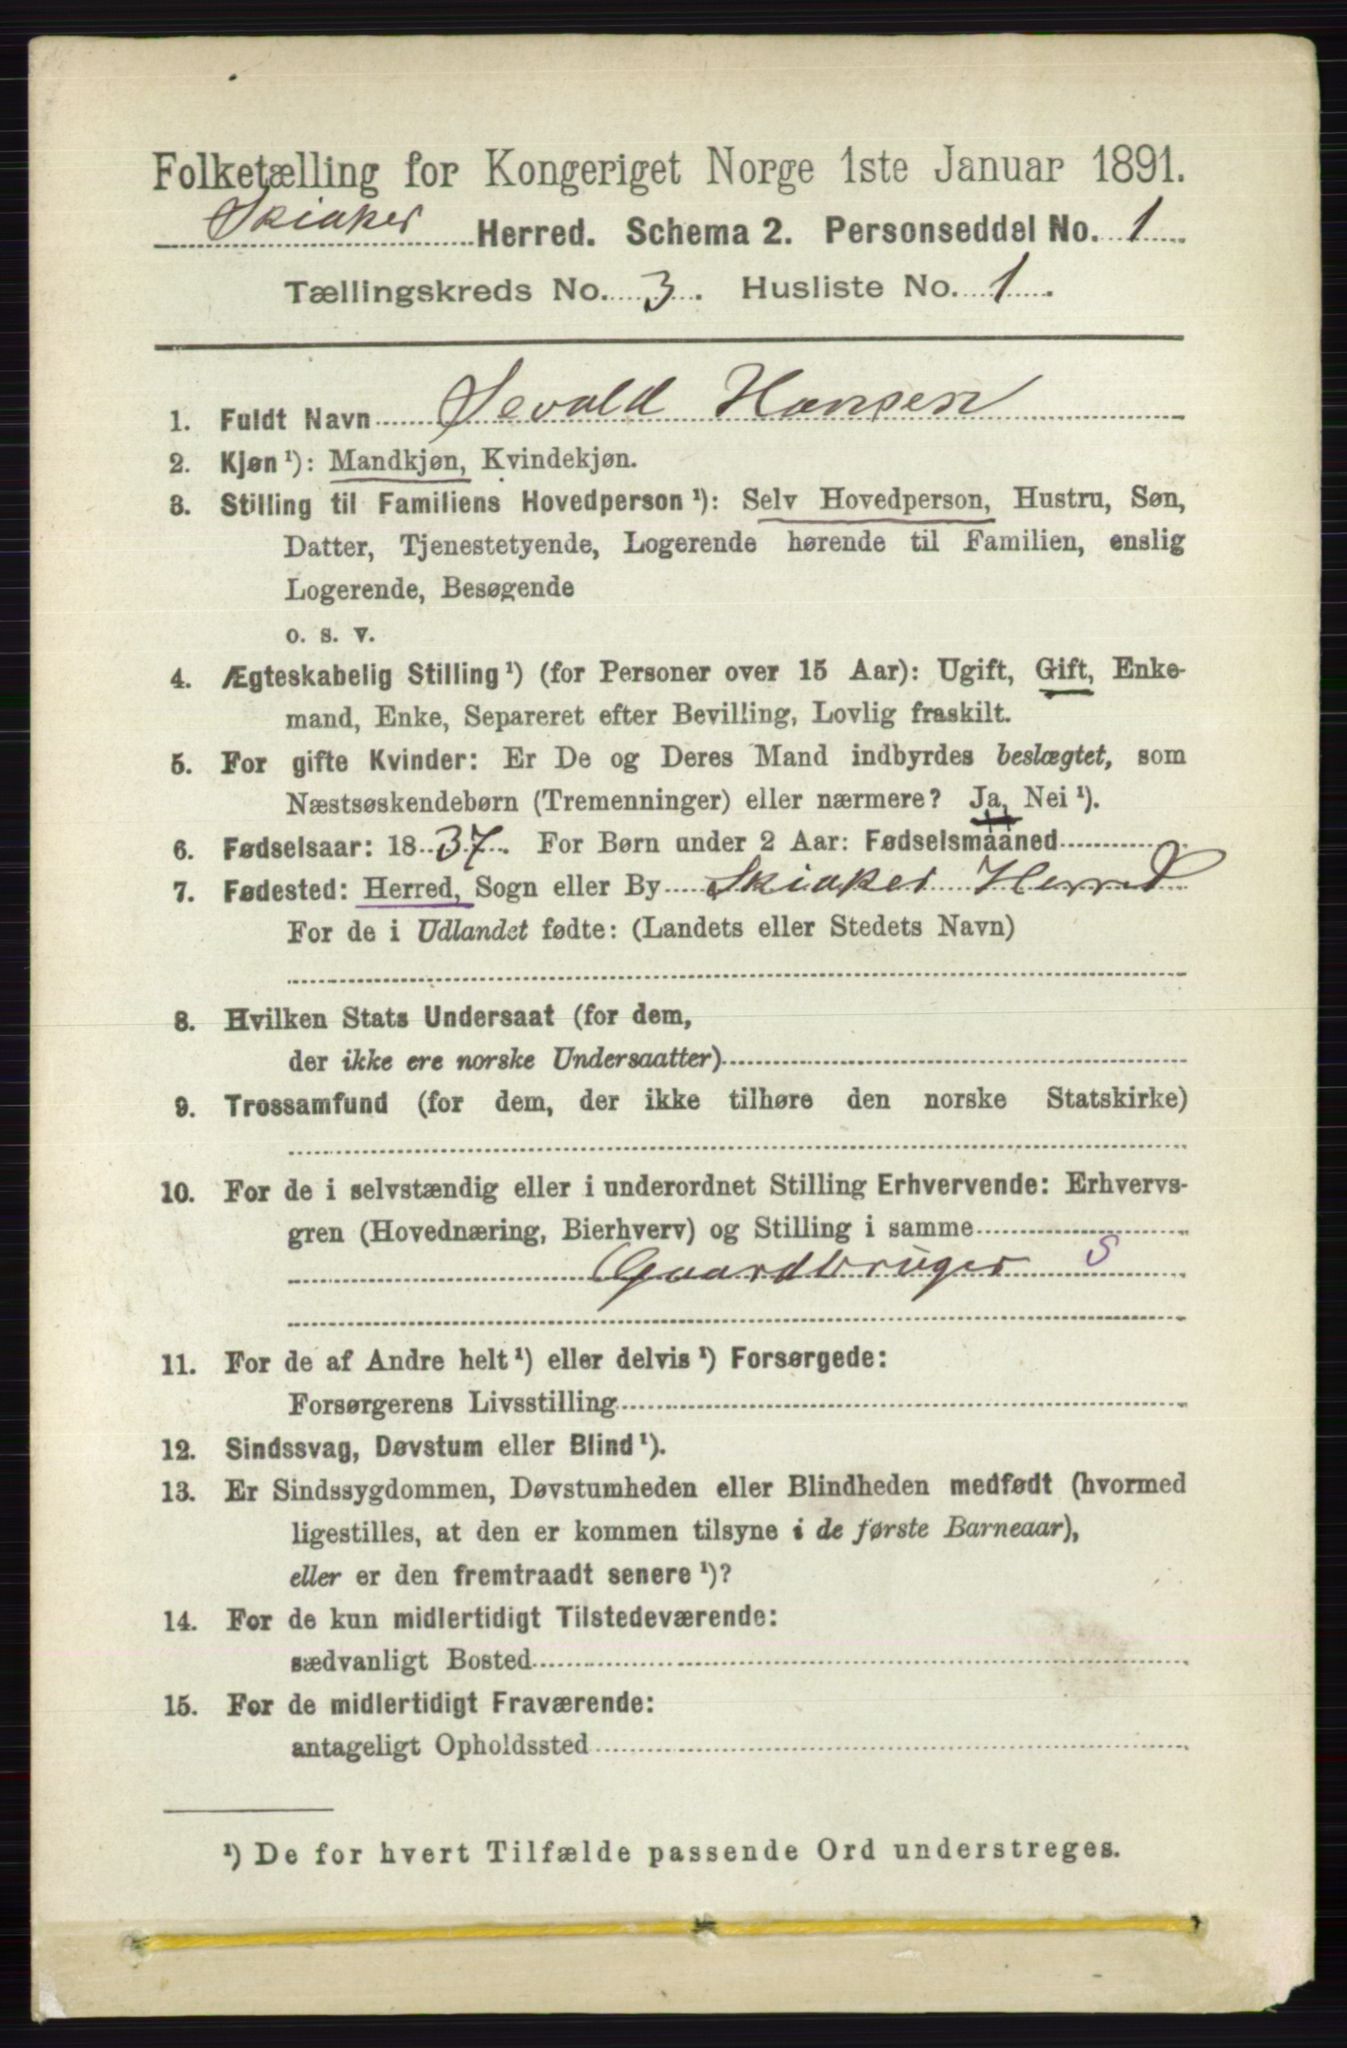 Folketælling for Kongeriget Norge 1ste Januar 1891.
Skiaker Herred. Schema 2. Personseddel No. 1
Tællingskreds No. 3. Husliste No. 1.
1. Fuldt Navn Sevald Hansen
2. Kjøn ¹): Mandkjøn, Kvindekjøn.
3. Stilling til Familiens Hovedperson ¹): Selv Hovedperson, Hustru, Søn,
Datter, Tjenestetyende, Logerende hørende til Familien, enslig
Logerende, Besøgende
o. s. v.
4. Ægteskabelig Stilling ¹) (for Personer over 15 Aar): Ugift, Gift, Enke-
mand, Enke, Separeret efter Bevilling, Lovlig fraskilt.
5. For gifte Kvinder: Er De og Deres Mand indbyrdes beslægtet, som
Næstsøskendebørn (Tremenninger) eller nærmere? Ja, Nei ¹).
6. Fødselsaar: 1837. For Børn under 2 Aar: Fødselsmaaned
7. Fødested: Herred, Sogn eller By Skiaker Herred
For de i Udlandet fødte: (Landets eller Stedets Navn)
8. Hvilken Stats Undersaat (for dem,
der ikke ere norske Undersaatter)
9. Trossamfund (for dem, der ikke tilhøre den norske Statskirke)
10. For de i selvstændig eller i underordnet Stilling Erhvervende: Erhvervs-
gren (Hovednæring, Bierhverv) og Stilling i samme
Gaardbruger S
11. For de af Andre helt ¹) eller delvis ¹) Forsørgede:
Forsørgerens Livsstilling
12. Sindssvag, Døvstum eller Blind ¹).
13. Er Sindssygdommen, Døvstumheden eller Blindheden medfødt (hvormed
ligestilles, at den er kommen tilsyne i de første Barneaar),
eller er den fremtraadt senere ¹)?
14. For de kun midlertidigt Tilstedeværende:
sædvanligt Bosted
15. For de midlertidigt Fraværende:
antageligt Opholdssted
¹) De for hvert Tilfælde passende Ord understreges.